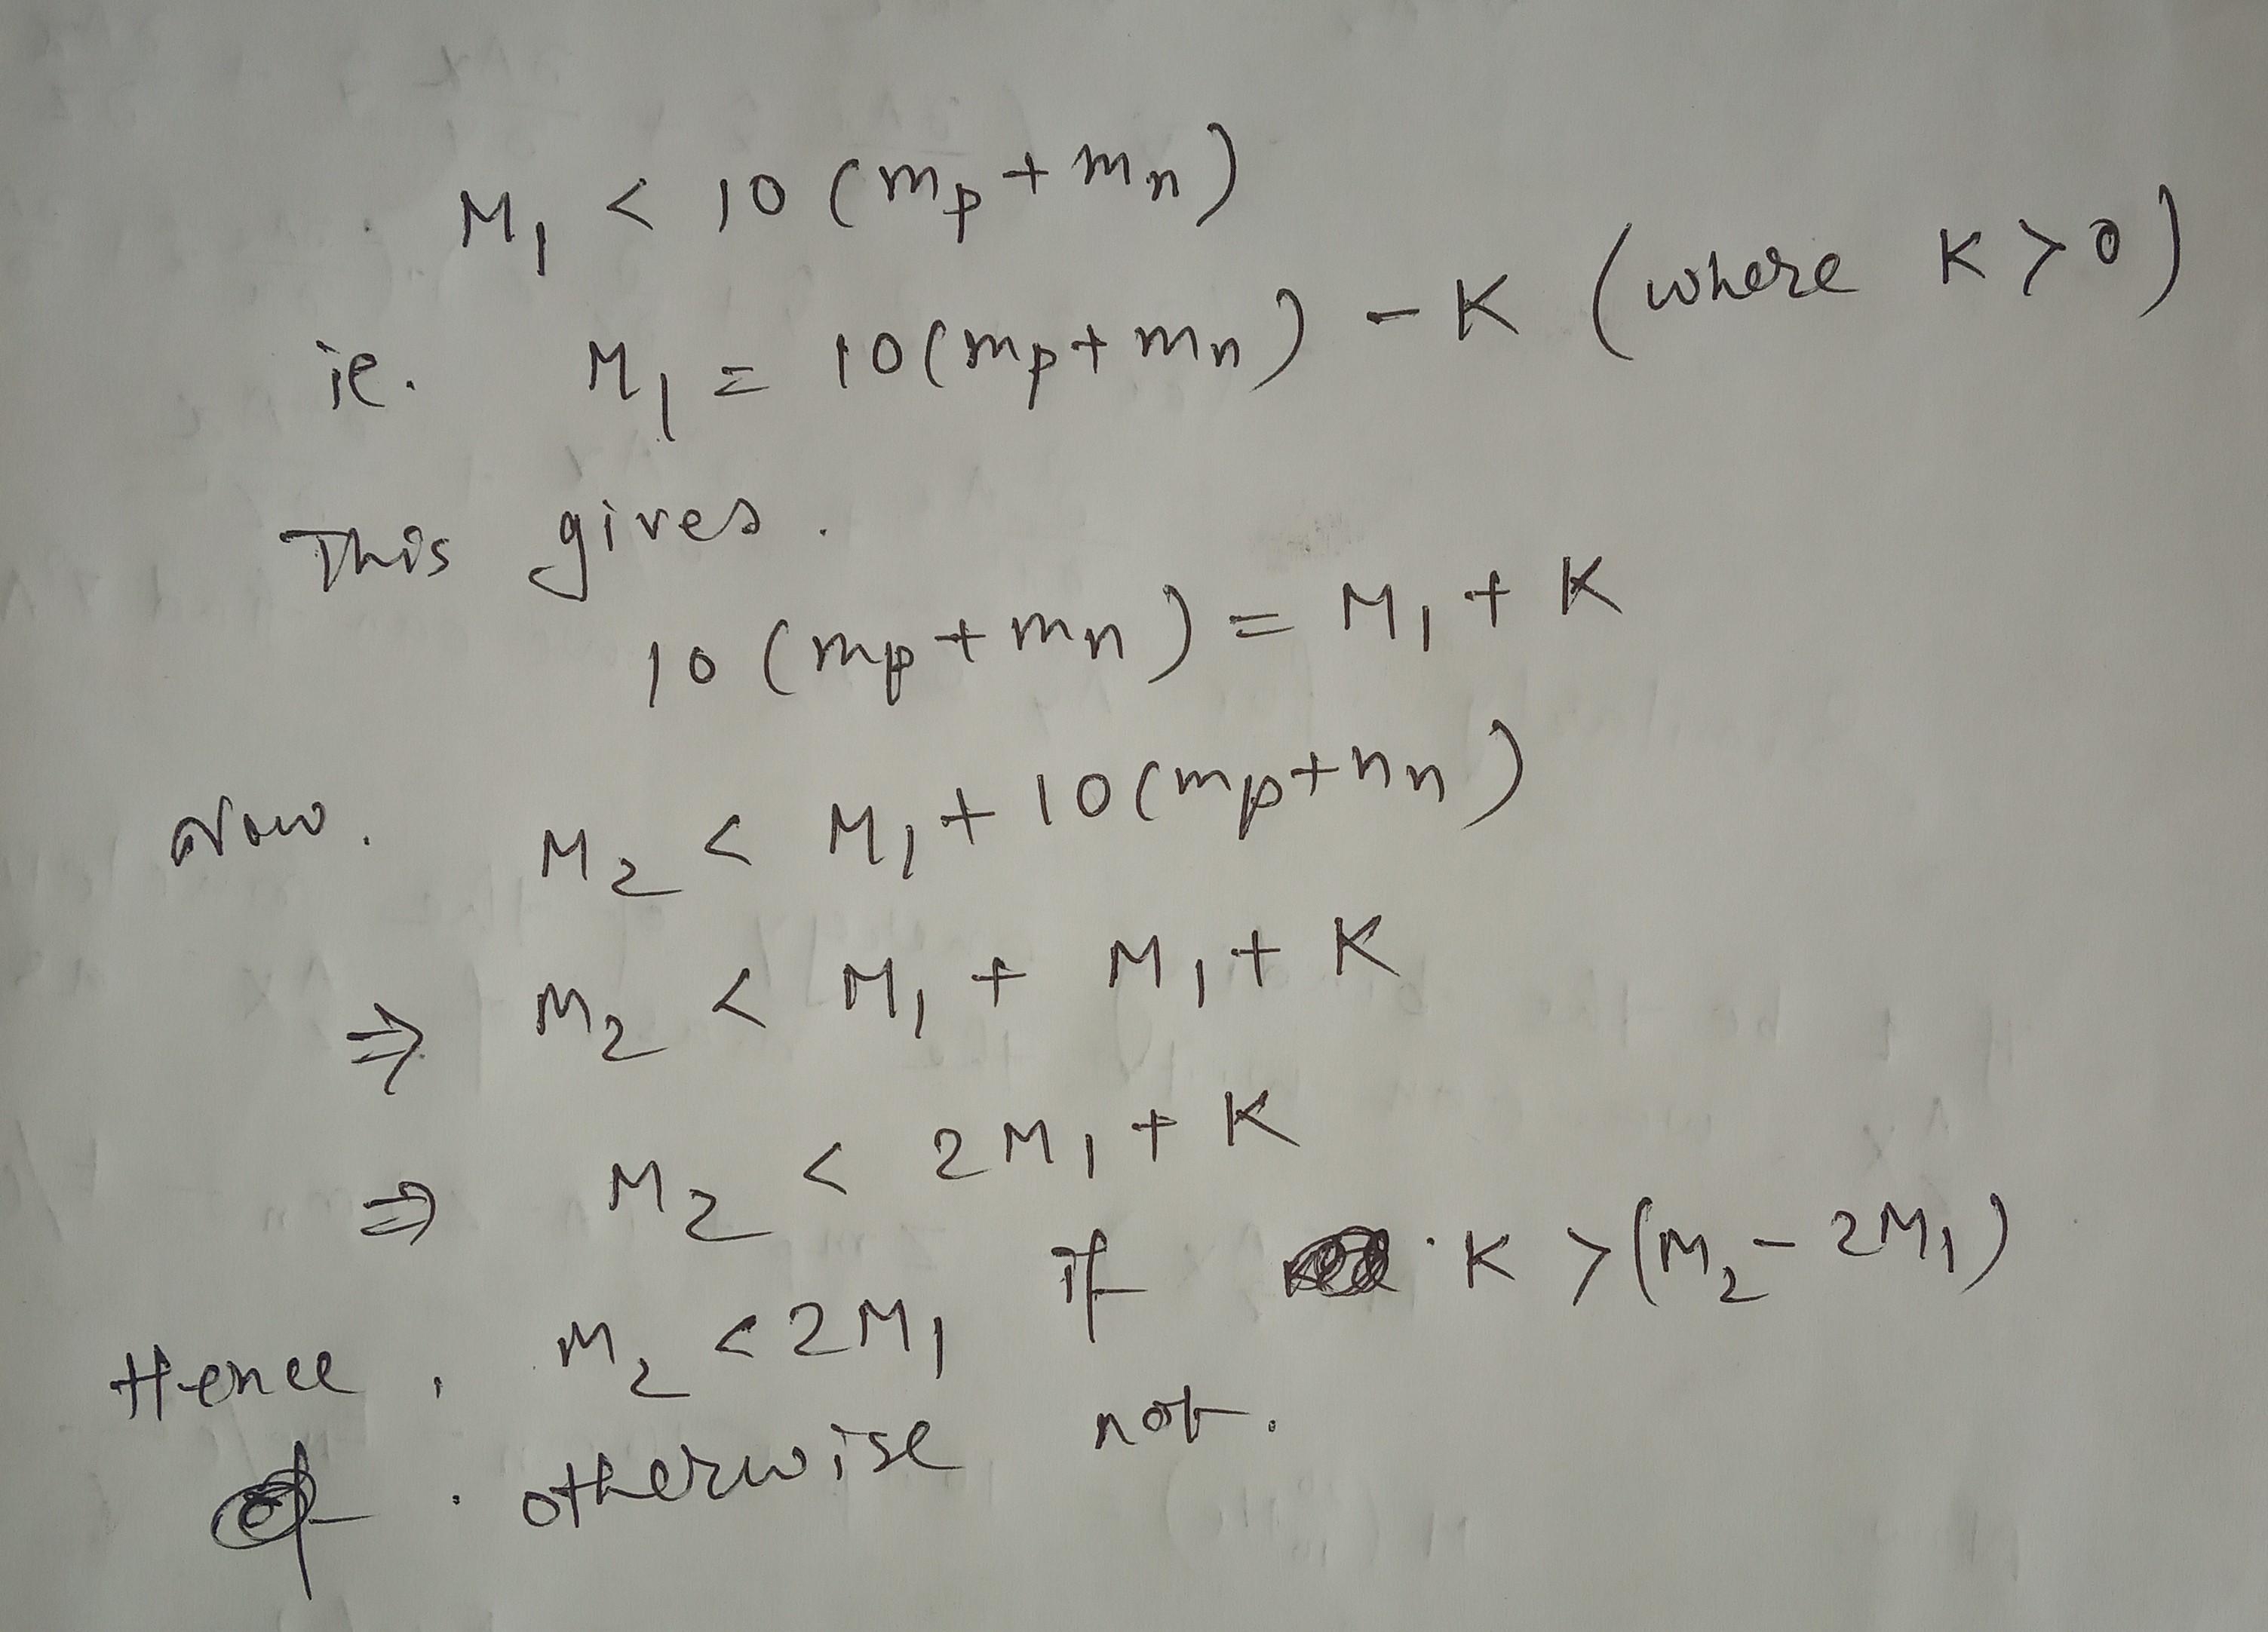 M₁ < 10 (mp + mn)
ie. M₁ = 10(mp + mn) - K (where K > 0)
This gives.
10 (mp + mn) = M₁ + K
Now. M₂ < M₁ + 10(mp + nn)
⇒ M₂ < M₁ + M₁ + K
⇒ M₂ < 2M₁ + K
Hence, M₂ < 2M₁ if K > (M₂ - 2M₁)
otherwise not.